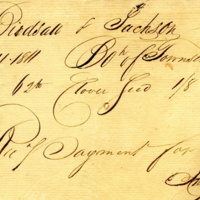 Birdsall & Jackson
1811 Bot of Townse
62 lb Clover Seed 1/8
Rec'd Payment for